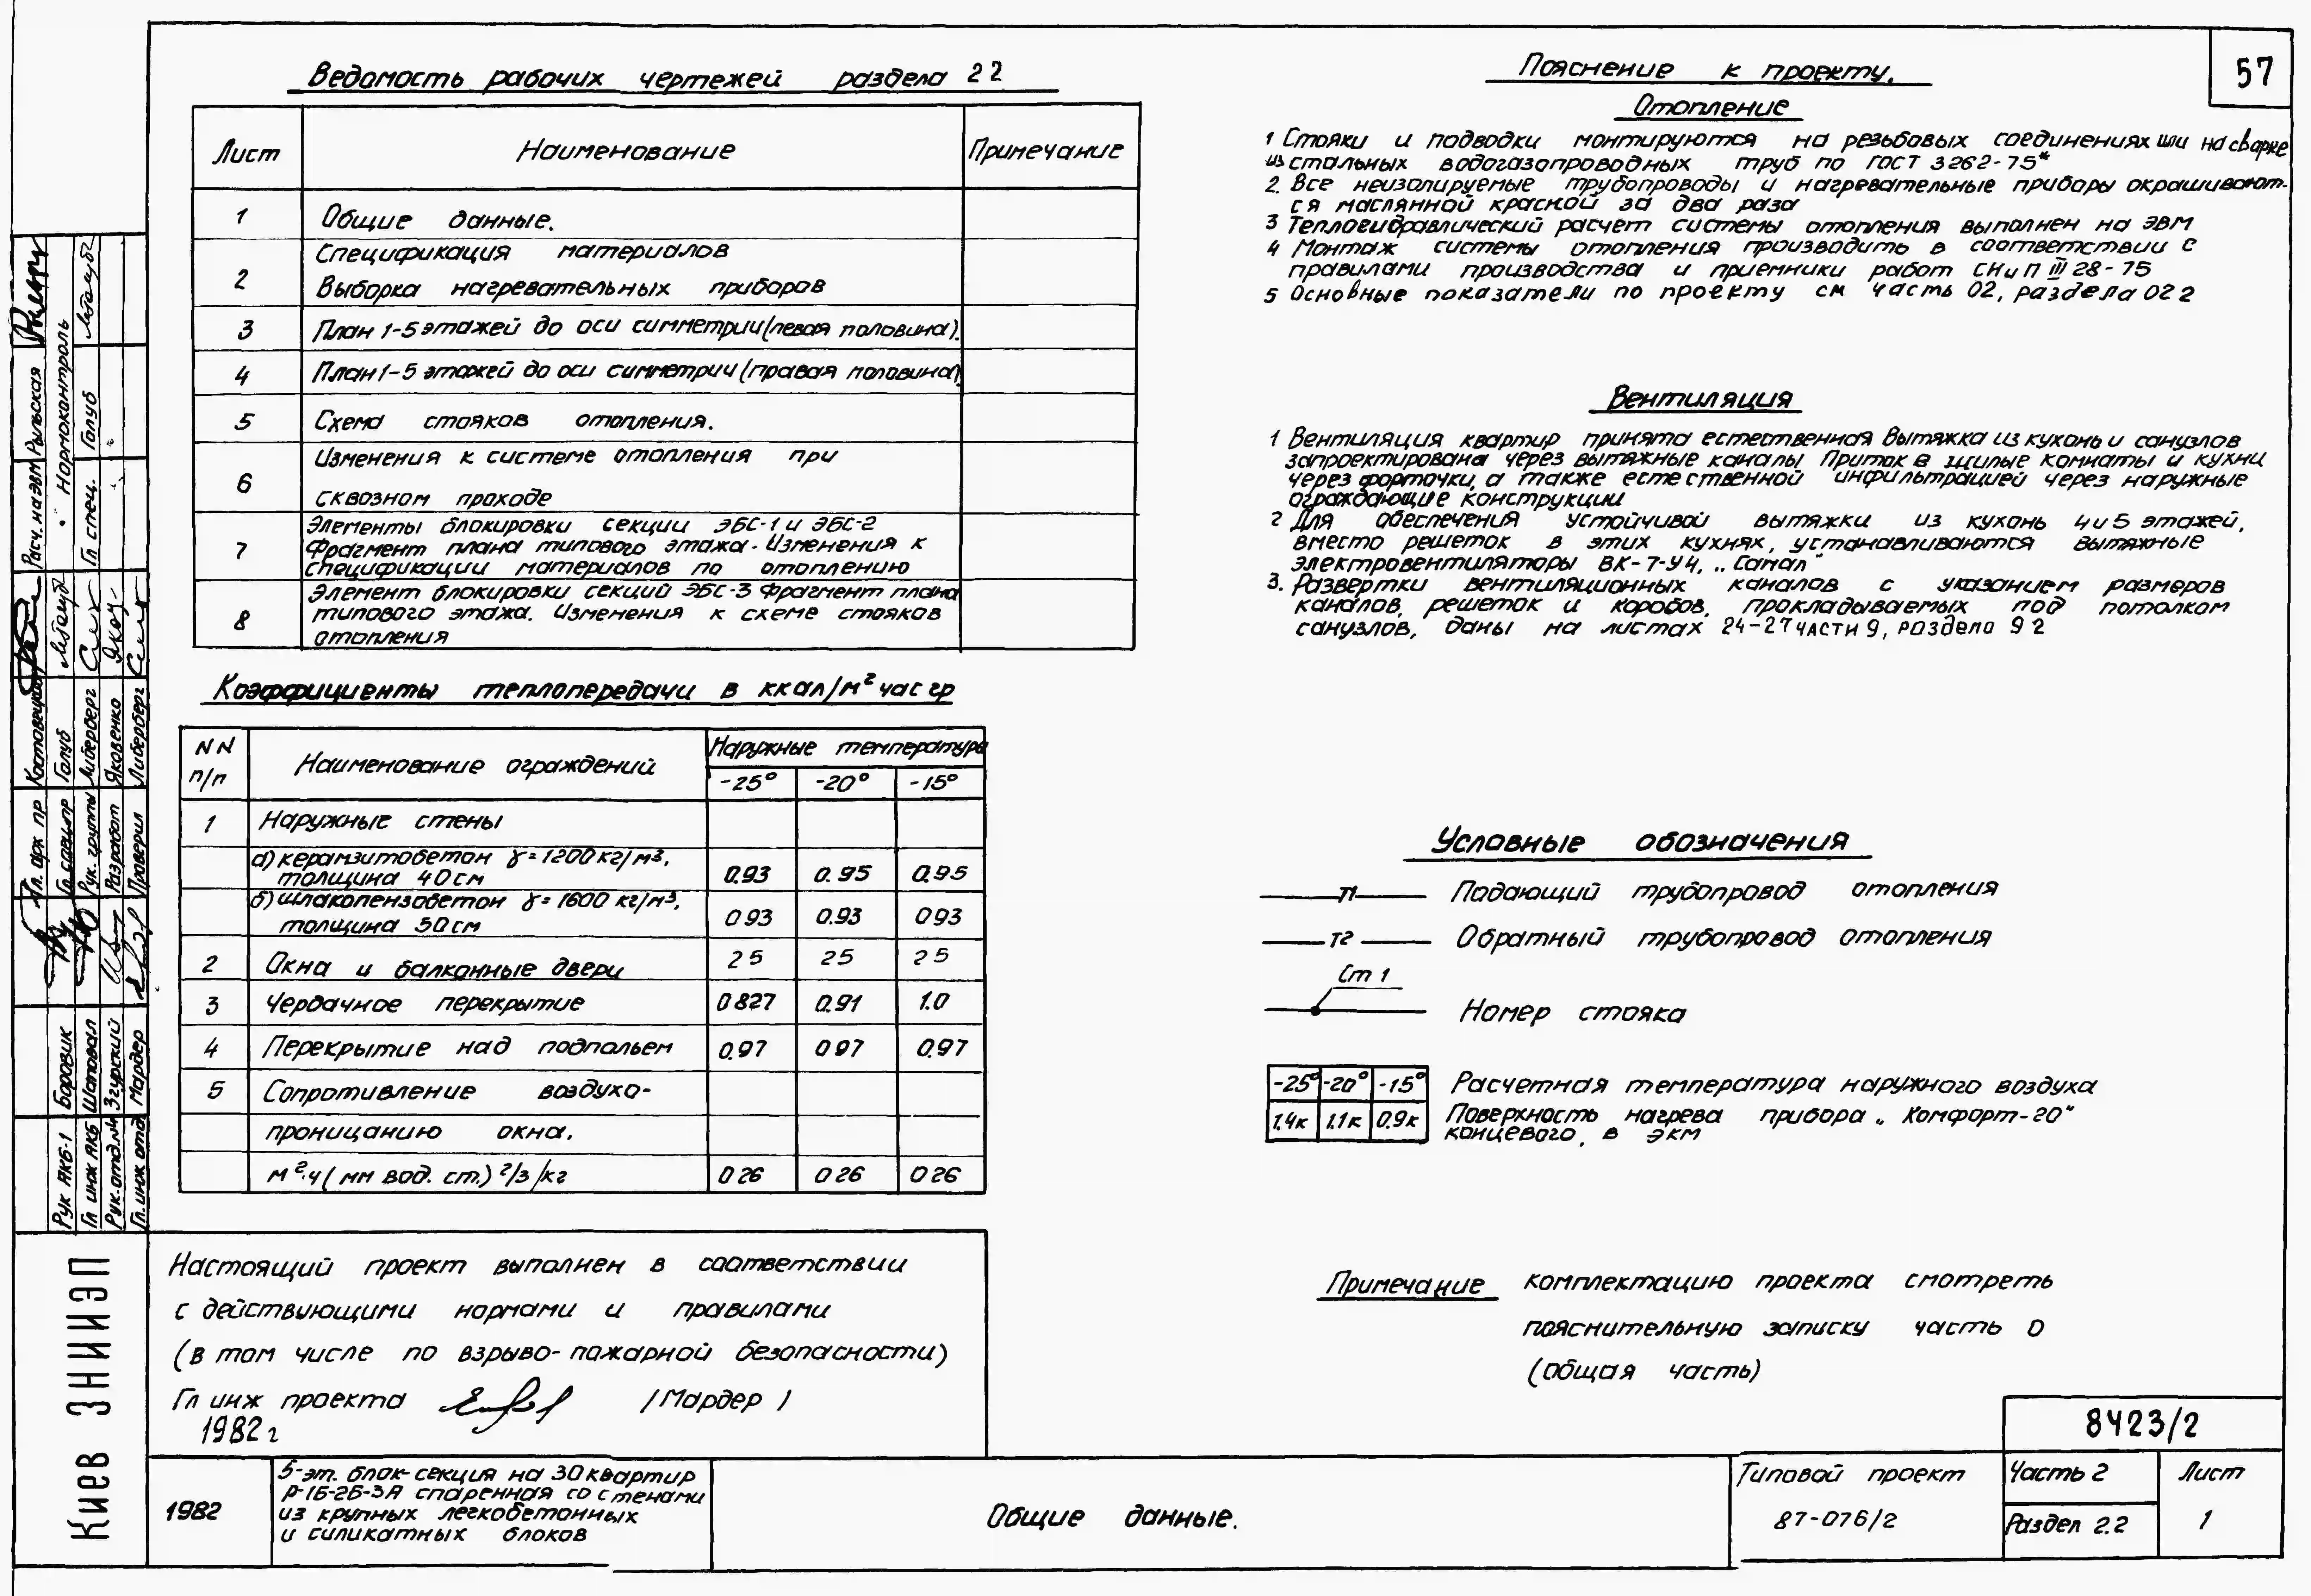 57
Ведомость рабочих чертежей раздела 2 2
Лист Наименование Примечание
1 Общие данные.
2 Спецификация материалов
Выборка нагревательных приборов
3 План 1-5 этажей до оси симметрии (левая половина).
4 План 1-5 этажей до оси симметрии (правая половина).
5 Схема стояков отопления.
6 Изменения к системе отопления при
сквозном проходе
7 Элементы блокировки секции ЭБС-1 и ЭБС-2
Фрагмент плана типового этажа. Изменения к
спецификации материалов по отоплению
8 Элемент блокировки секций ЭБС-3 Фрагмент плана
типового этажа. Изменения к схеме стояков
отопления
Коэффициенты теплопередачи в ккал/м² час гр
NN п/п Наименование ограждений Наружные температуры
-25° -20° -15°
1 Наружные стены
а) керамзитобетон γ=1200кг/м³,
толщина 40см 0.93 0.95 0.95
б) шлакопензобетон γ=1600 кг/м³,
толщина 50см 0 93 0.93 0 93
2 Окна и балконные двери 2 5 2 5 2 5
3 Чердачное перекрытие 0 827 0.91 1.0
4 Перекрытие над подпольем 0.97 0 97 0.97
5 Сопротивление воздухо-
проницанию окна.
м²·ч (мм вод. ст.) 2/3 /кг 0 26 0 26 0 26
Настоящий проект выполнен в соответствии
с действующими нормами и правилами
(в том числе по взрыво-пожарной безопасности)
Гл инж проекта /Мардер /
1982 г
Пояснение к проекту.
Отопление
1 Стояки и подводки монтируются на резьбовых соединениях или на сварке
из стальных водогазопроводных труб по ГОСТ 3262-75*
2. Все неизолируемые трубопроводы и нагревательные приборы окрашивают-
ся маслянной краской за два раза
3 Теплогидравлический расчет системы отопления выполнен на ЭВМ
4 Монтаж системы отопления производить в соответствии с
правилами производства и приемники работ СНиП III 28-75
5 Основные показатели по проекту см часть 02, раздела 02 2
Вентиляция
1 Вентиляция квартир принята естественная Вытяжка из кухонь и санузлов
запроектирована через вытяжные каналы Приток в жилые комнаты и кухни
через форточки, а также естественной инфильтрацией через наружные
ограждающие конструкции
2 Для обеспечения устойчивой вытяжки из кухонь 4 и 5 этажей,
вместо решеток в этих кухнях, устанавливаются вытяжные
электровентиляторы ВК-7-У4, „Самал"
3. Развертки вентиляционных каналов с указанием размеров
каналов, решеток и коробов, прокладываемых под потолком
санузлов, даны на листах 24-27 части 9, раздела 9 2
Условные обозначения
Т1 Подающий трубопровод отопления
Т2 Обратный трубопровод отопления
Ст 1 Номер стояка
-25° -20° -15° Расчетная температура наружного воздуха
1.4к 1.1к 0.9к Поверхность нагрева прибора „Комфорт-20"
концевого, в экм
Примечание комплектацию проекта смотреть
пояснительную записку часть 0
(общая часть)
8423/2
1982
5-эт. блок-секция на 30 квартир
Р-1Б-2Б-3А спаренная со стенами
из крупных легкобетонных
и силикатных блоков
Общие данные.
Типовой проект
87-076/2
Часть 2
Раздел 2.2
Лист
1
Киев ЗНИИЭП
Рук АКБ-1 Боровик
Гл инж АКБ Шаповал
Рук. отд. №4 Згурский
Гл. инж отд Мардер
Гл. арх пр
Голуб
Рук. группы Либерберг
Разработ Яковенко
Проверил Либерберг
Расч. на ЭВМ Рыльская
Нормоконтроль
Гл спец. Голуб